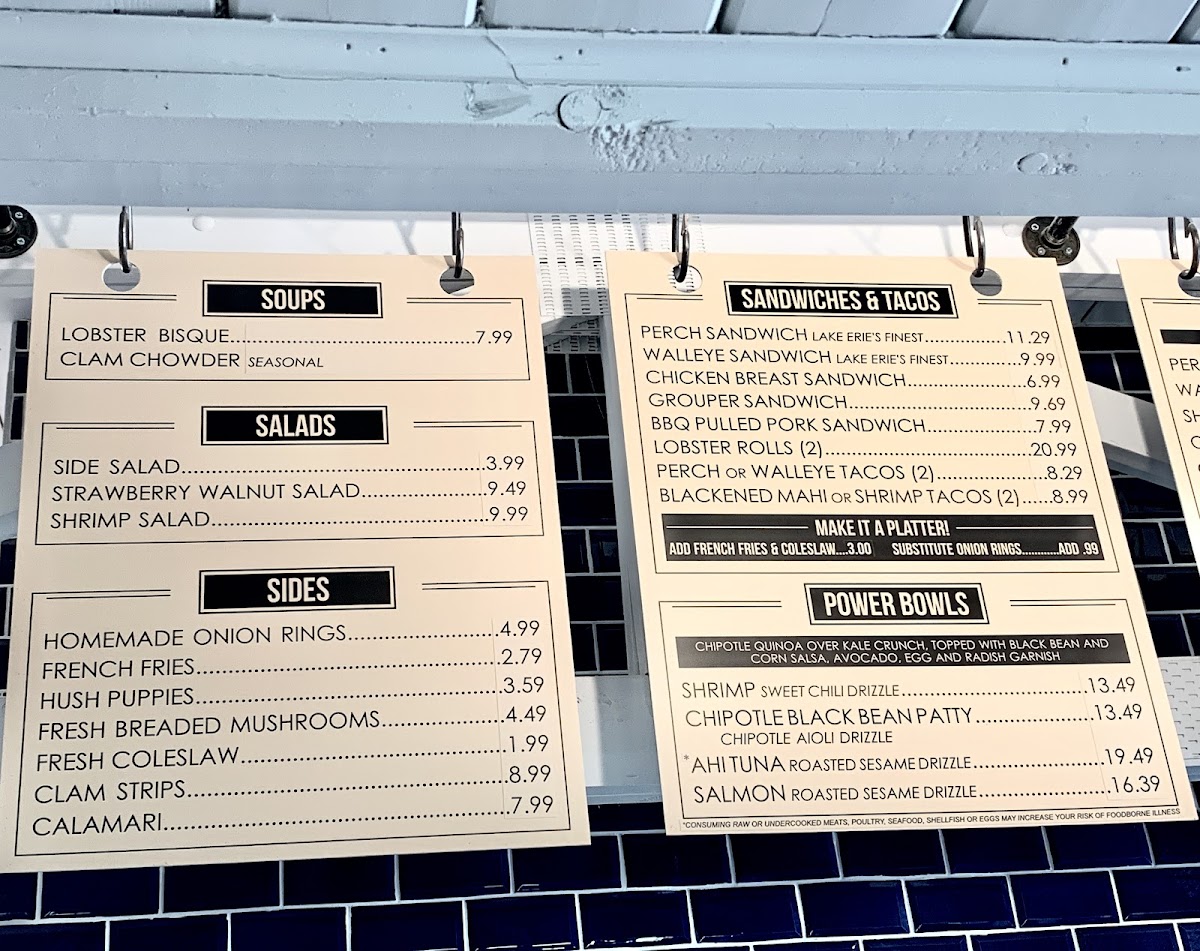 SOUPS
LOBSTER BISQUE..............................7.99
CLAM CHOWDER SEASONAL
SALADS
SIDE SALAD..............................3.99
STRAWBERRY WALNUT SALAD...............9.49
SHRIMP SALAD..............................9.99
SIDES
HOMEMADE ONION RINGS...............4.99
FRENCH FRIES..............................2.79
HUSH PUPPIES..............................3.59
FRESH BREADED MUSHROOMS...............4.49
FRESH COLESLAW..............................1.99
CLAM STRIPS..............................8.99
CALAMARI..............................7.99
SANDWICHES & TACOS
PERCH SANDWICH LAKE ERIE'S FINEST...............11.29
WALLEYE SANDWICH LAKE ERIE'S FINEST...............9.99
CHICKEN BREAST SANDWICH...............6.99
GROUPER SANDWICH..............................9.69
BBQ PULLED PORK SANDWICH...............7.99
LOBSTER ROLLS (2)..............................20.99
PERCH OR WALLEYE TACOS (2)...............8.29
BLACKENED MAHI OR SHRIMP TACOS (2)......8.99
MAKE IT A PLATTER!
ADD FRENCH FRIES & COLESLAW....3.00 SUBSTITUTE ONION RINGS............ADD .99
POWER BOWLS
CHIPOTLE QUINOA OVER KALE CRUNCH, TOPPED WITH BLACK BEAN AND
CORN SALSA, AVOCADO, EGG AND RADISH GARNISH
SHRIMP SWEET CHILI DRIZZLE..............................13.49
CHIPOTLE BLACK BEAN PATTY....................13.49
CHIPOTLE AIOLI DRIZZLE
*AHI TUNA ROASTED SESAME DRIZZLE....................19.49
SALMON ROASTED SESAME DRIZZLE....................16.39
*CONSUMING RAW OR UNDERCOOKED MEATS, POULTRY, SEAFOOD, SHELLFISH OR EGGS MAY INCREASE YOUR RISK OF FOODBORNE ILLNESS